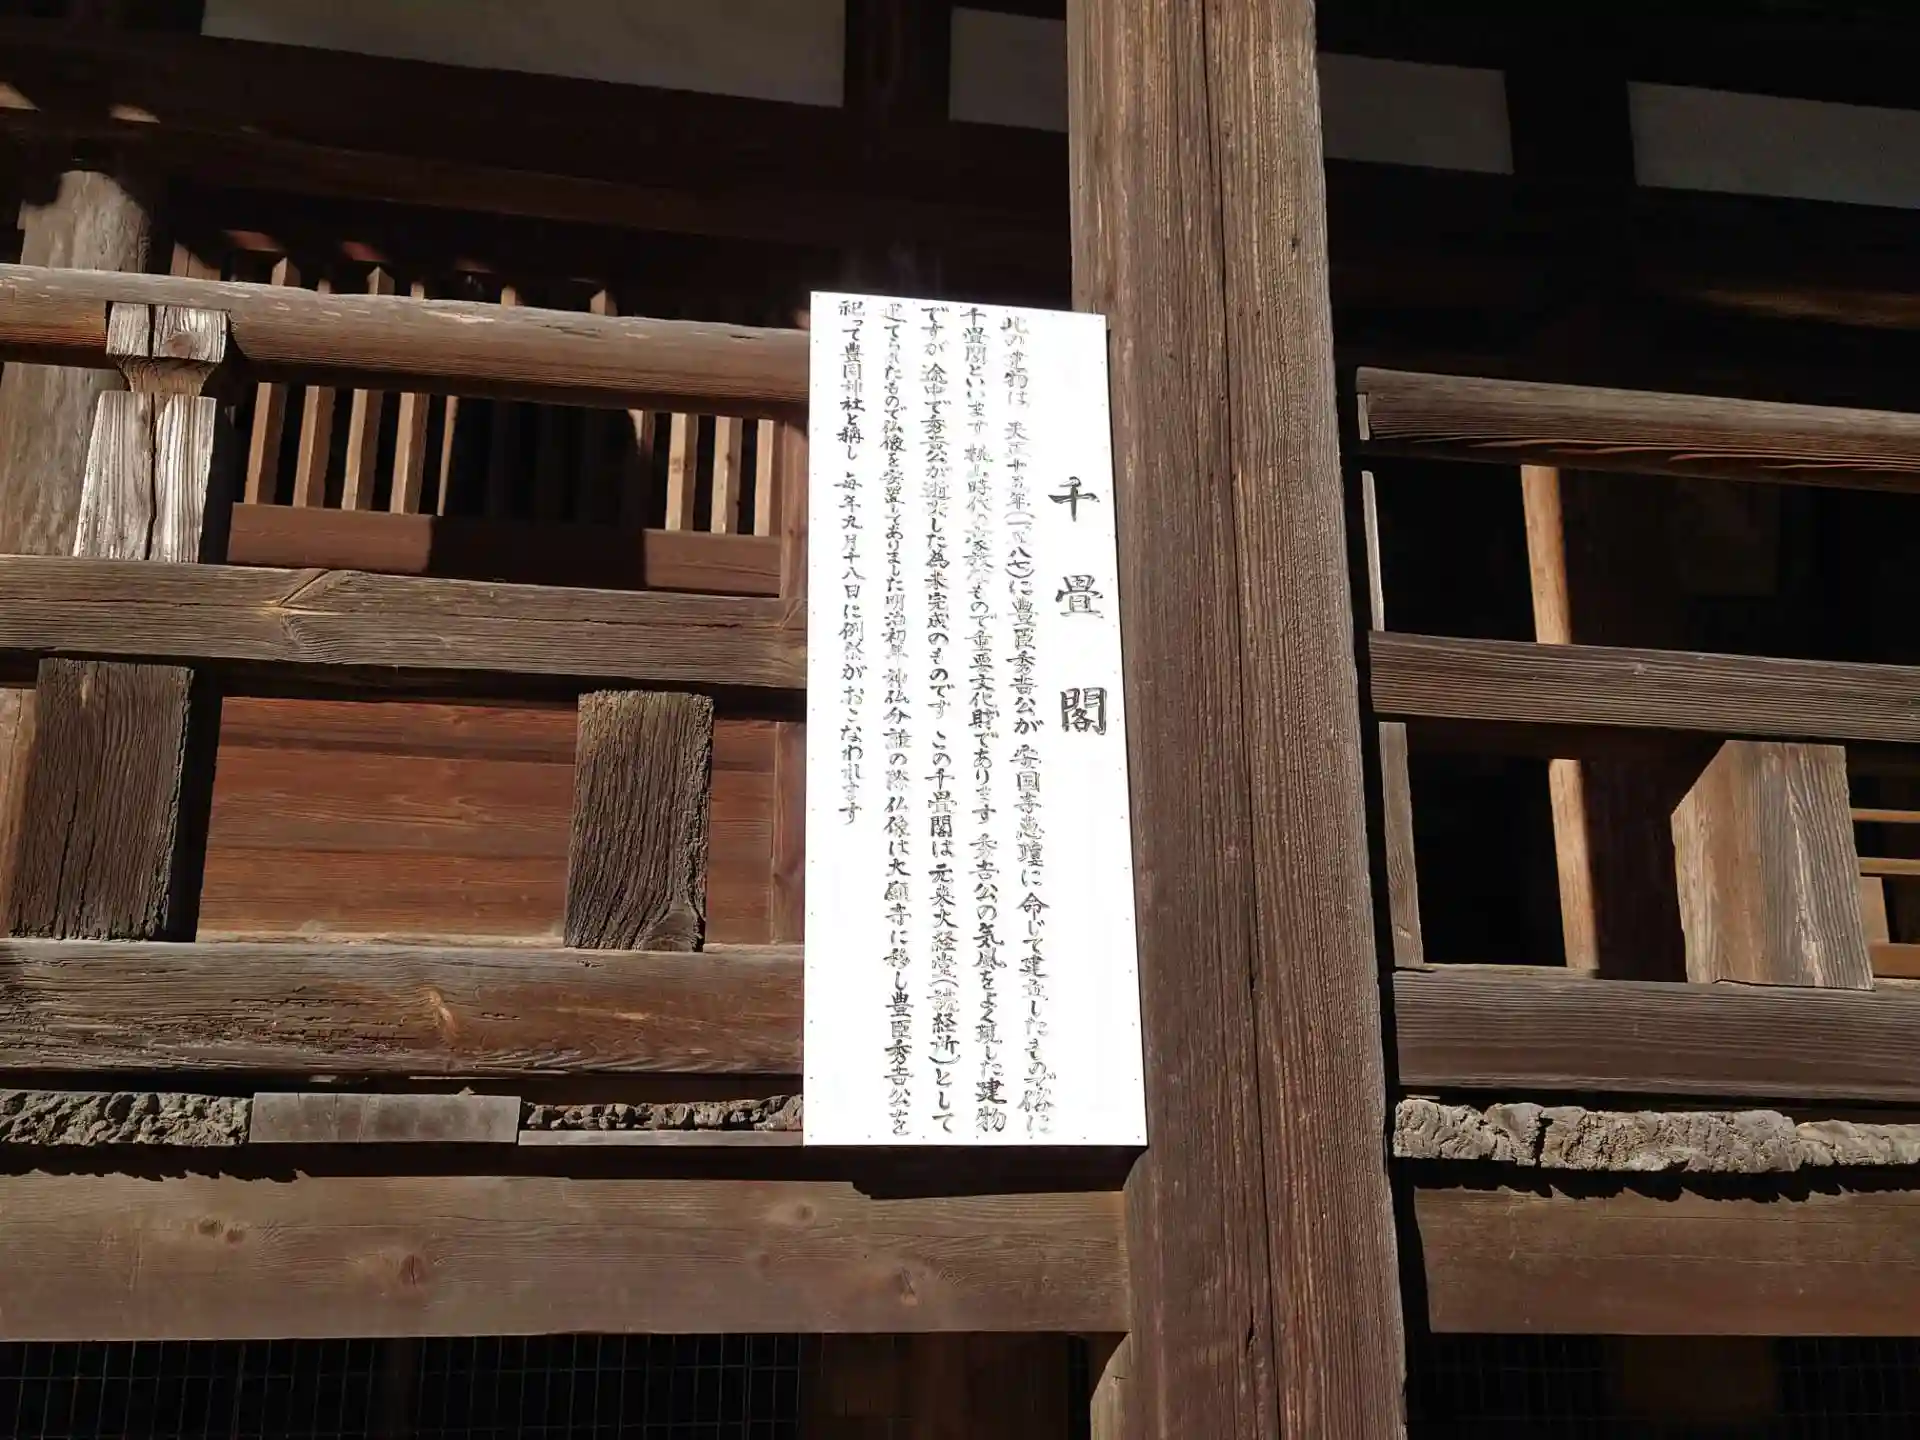 千畳閣
此の建物は 天正十五年(一五八七)に豊臣秀吉公が 安国寺恵瓊に命じて建立したもので俗に
千畳閣といいます 桃山時代の豪放なもので重要文化財であります 秀吉公の気風をよく現した建物
ですが 途中で秀吉公が逝去した為未完成のものです この千畳閣は元来大経堂(読経所)として
建てられたもので仏像を安置してありました 明治初年 神仏分離の際 仏像は大願寺に移し豊臣秀吉公を
祀って豊国神社と稱し 毎年九月十八日に例祭がおこなわれます